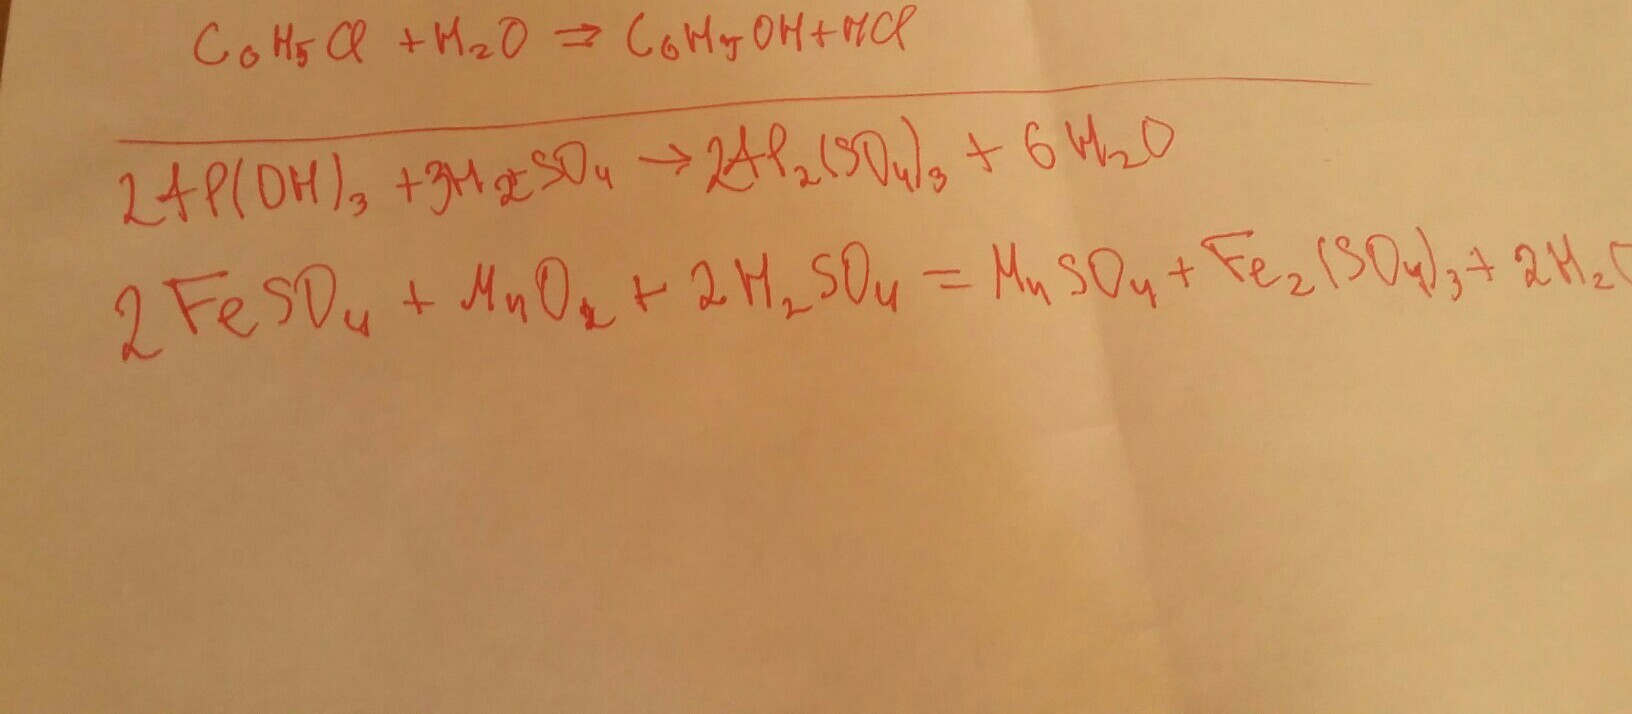 C₆H₅Cl + H₂O ⇒ C₆H₅OH + HCl
2Al(OH)₃ + 3H₂SO₄ → 2Al₂(SO₄)₃ + 6H₂O
2FeSO₄ + MnO₂ + 2H₂SO₄ = MnSO₄ + Fe₂(SO₄)₃ + 2H₂O